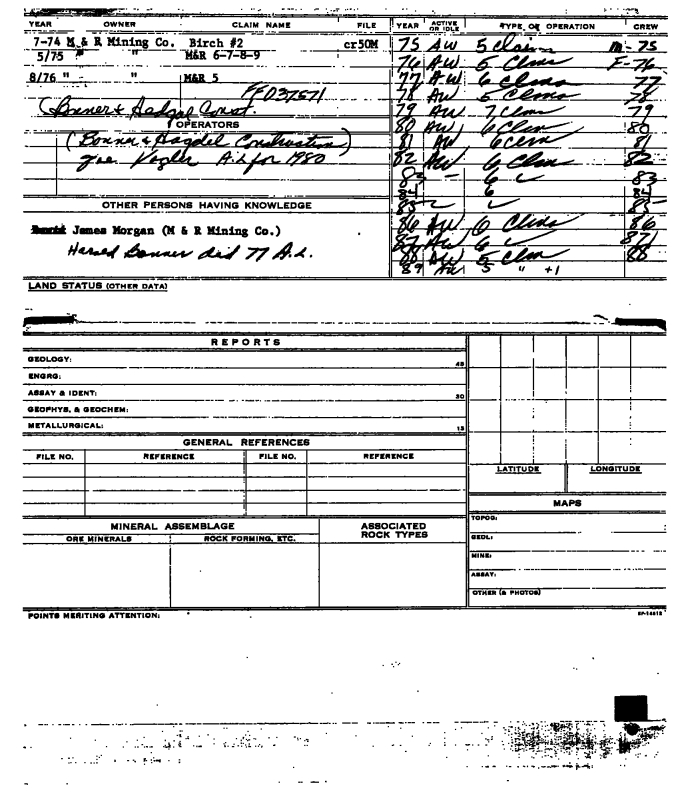 YEAR OWNER CLAIM NAME FILE YEAR ACTIVE OR IDLE TYPE OF OPERATION CREW
7-74 M & R Mining Co. Birch #2 cr50M 75 AW 5 claim M-75
5/75 " " M&R 6-7-8-9 76 AW 5 Clms F-76
8/76 " " M&R 5 77 AW 6 Clms 77
FF037571 78 AW 5 Clms 78
(Bonner & Const. 79 AW 7 Clms 79
OPERATORS 80 AW 6 Clm 80
(Bonner & Hagdel Construction) 81 AW 6 clm 81
Joe Vogler A.L. for 1980 82 AW 6 Clm 82
83 - 6 ✓ 83
84 6 84
OTHER PERSONS HAVING KNOWLEDGE 85 85
James Morgan (M & R Mining Co.) 86 AW 6 Clms 86
Harold Bonner did 77 A.L. 87 AW 6 ✓ 87
88 AW 5 Clm 88
89 AW 5 " +1
LAND STATUS (OTHER DATA)
REPORTS
GEOLOGY: 45
ENGRG:
ASSAY & IDENT: 30
GEOPHYS. & GEOCHEM:
METALLURGICAL: 15
GENERAL REFERENCES
FILE NO. REFERENCE FILE NO. REFERENCE
LATITUDE LONGITUDE
MAPS
MINERAL ASSEMBLAGE ASSOCIATED ROCK TYPES
ORE MINERALS ROCK FORMING, ETC.
TOPOG:
GEOL:
MINE:
ASSAY:
OTHER (& PHOTOS)
POINTS MERITING ATTENTION: